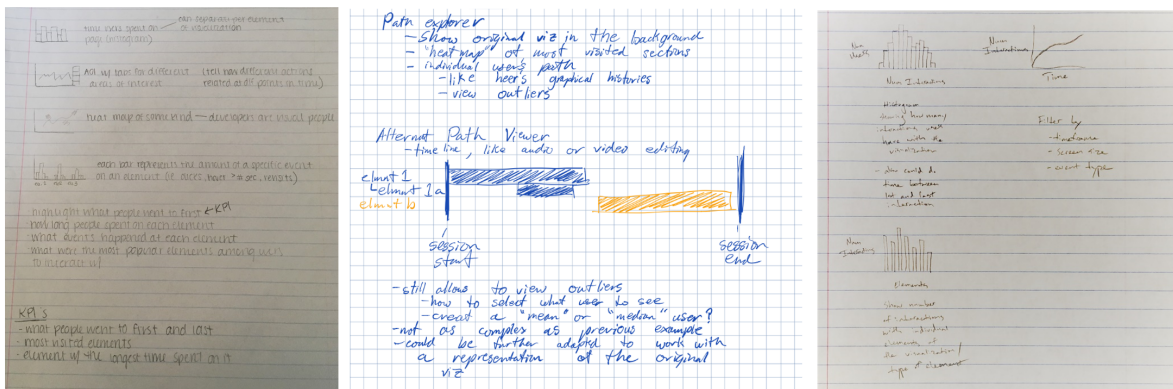 time users spent on
page (histograms)
can separate per element
of visualization
AOI, w/ tool for different
areas of interest
(tell how different actions
related at diff points in time)
heat map of some kind — developers are visual people
each bar represents the amount of a specific event
on an element (ie. faces, hover > # sec, revisits)
highlight what people went to first ← KPI
how long people spent on each element
what events happened at each element
what were the most popular elements among users
to interact w/
KPI's
- what people went to first and last
- most visited elements
- element w/ the longest time spent on it
Path explorer
- Show original viz in the background
- "heat map" of most visited sections
- individual user's path
- like heer's graphical histories
- view outliers
Alternat Path Viewer
- time line, like audio or video editing
elmnt 1
elmnt 1a
elmnt b
session
start
session
end
- still allows to view outliers
- how to select what user to see
- creat a "mean" or "median" user?
- not as complex as previous example
- could be further adapted to work with
a representation of the original
viz
Num
Num Interactions
Num
Interactions
Time
Histogram
showing how many
interactions users
have with the
visualization
- also could do
time between
1st and last
interaction
Filter by
- timeframe
- screen size
- event type
Num
Interactions
Elements
Show number
of interactions
with individual
elements of
the visualization/
type of element